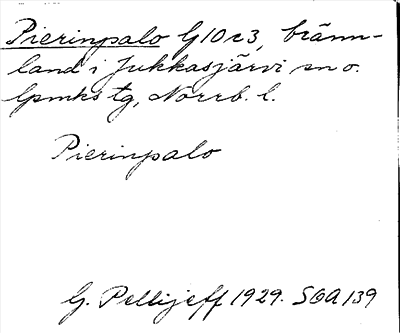 Pierinpalo G10c3, bränn-
land i Jukkasjärvi sn o.
lpmks tg, Norrb. l.
Pierinpalo
G. Pellijeff 1929. SOA 139